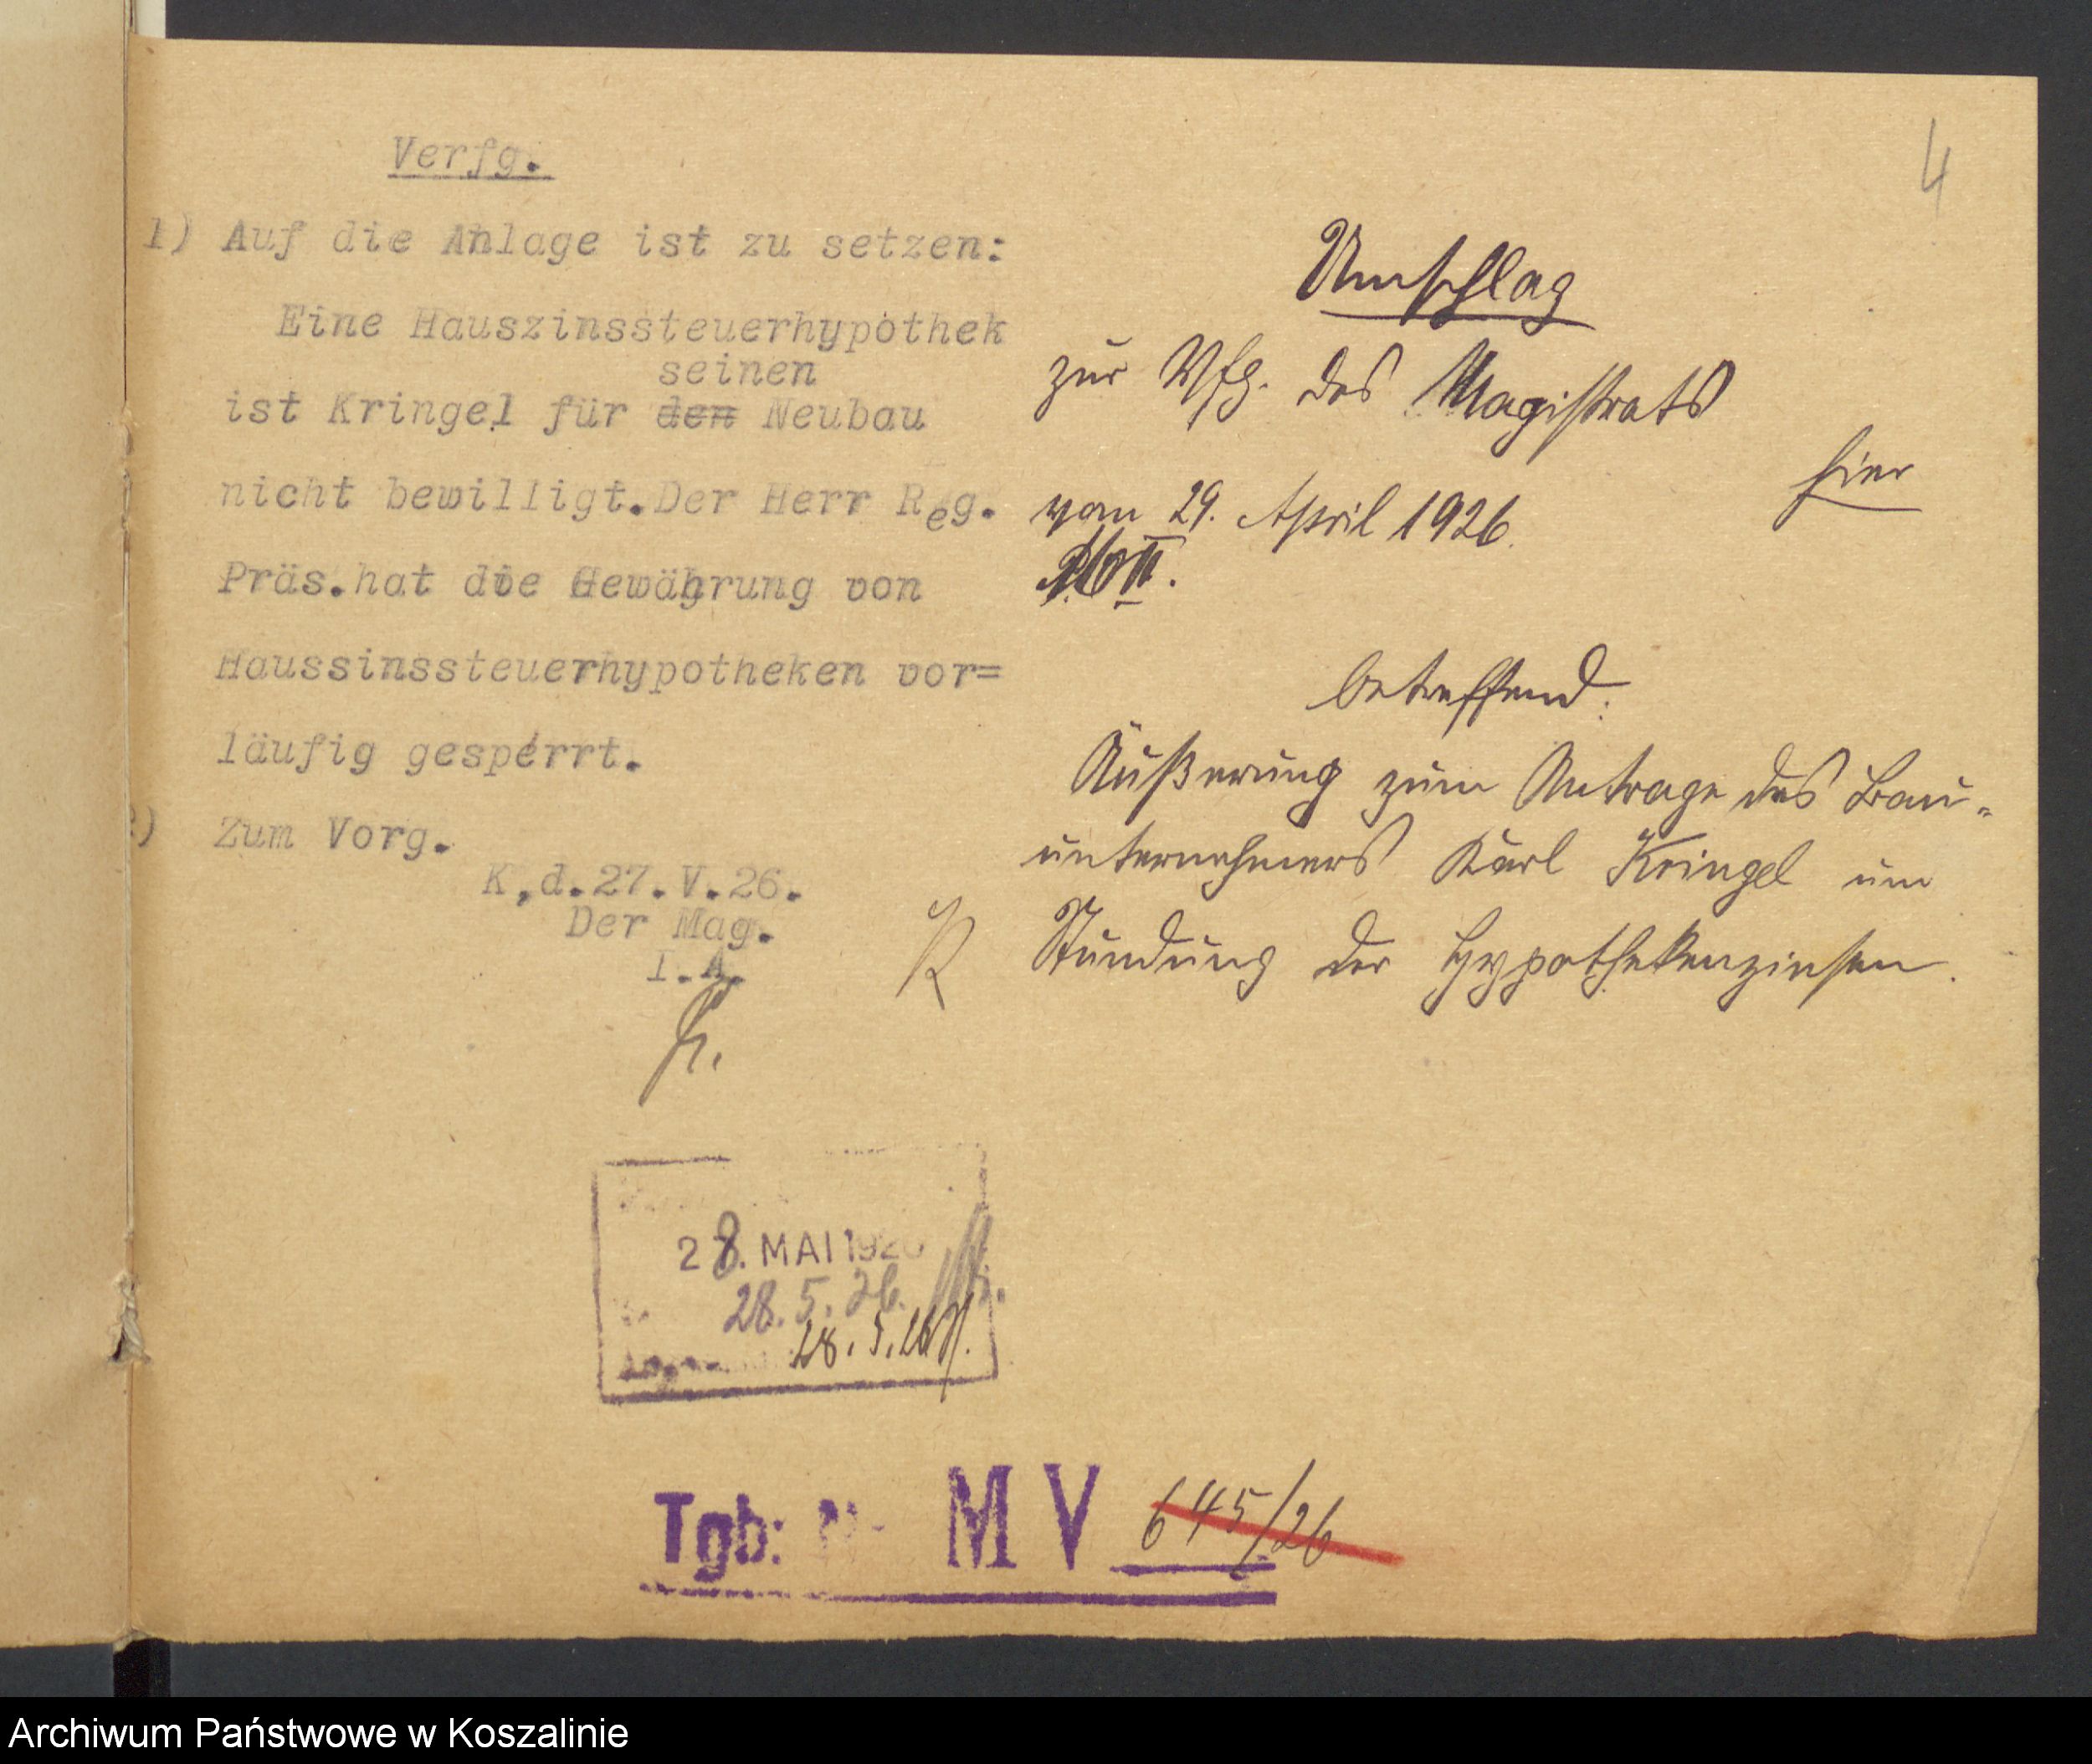 4
Verfg.
1) Auf die Anlage ist zu setzen:
Eine Hauszinssteuerhypothek
seinen
ist Kringel für den Neubau
nicht bewilligt.Der Herr Reg.
Präs.hat die Gewährung von
Haussinssteuerhypotheken vor=
läufig gesperrt.
2) Zum Vorg.
K,d.27.V.26.
Der Mag.
I.A.
Umschlag
zur Vfg. des Magistrats
hier
vom 29. April 1926.
betreffend:
Äußerung zum Antrage des Bau-
unternehmers Karl Kringel um
Stundung der Hypothekenzinsen.
28. MAI 1926
28.5.26.
28.5.26
Tgb: N MV 645/26
Archiwum Państwowe w Koszalinie